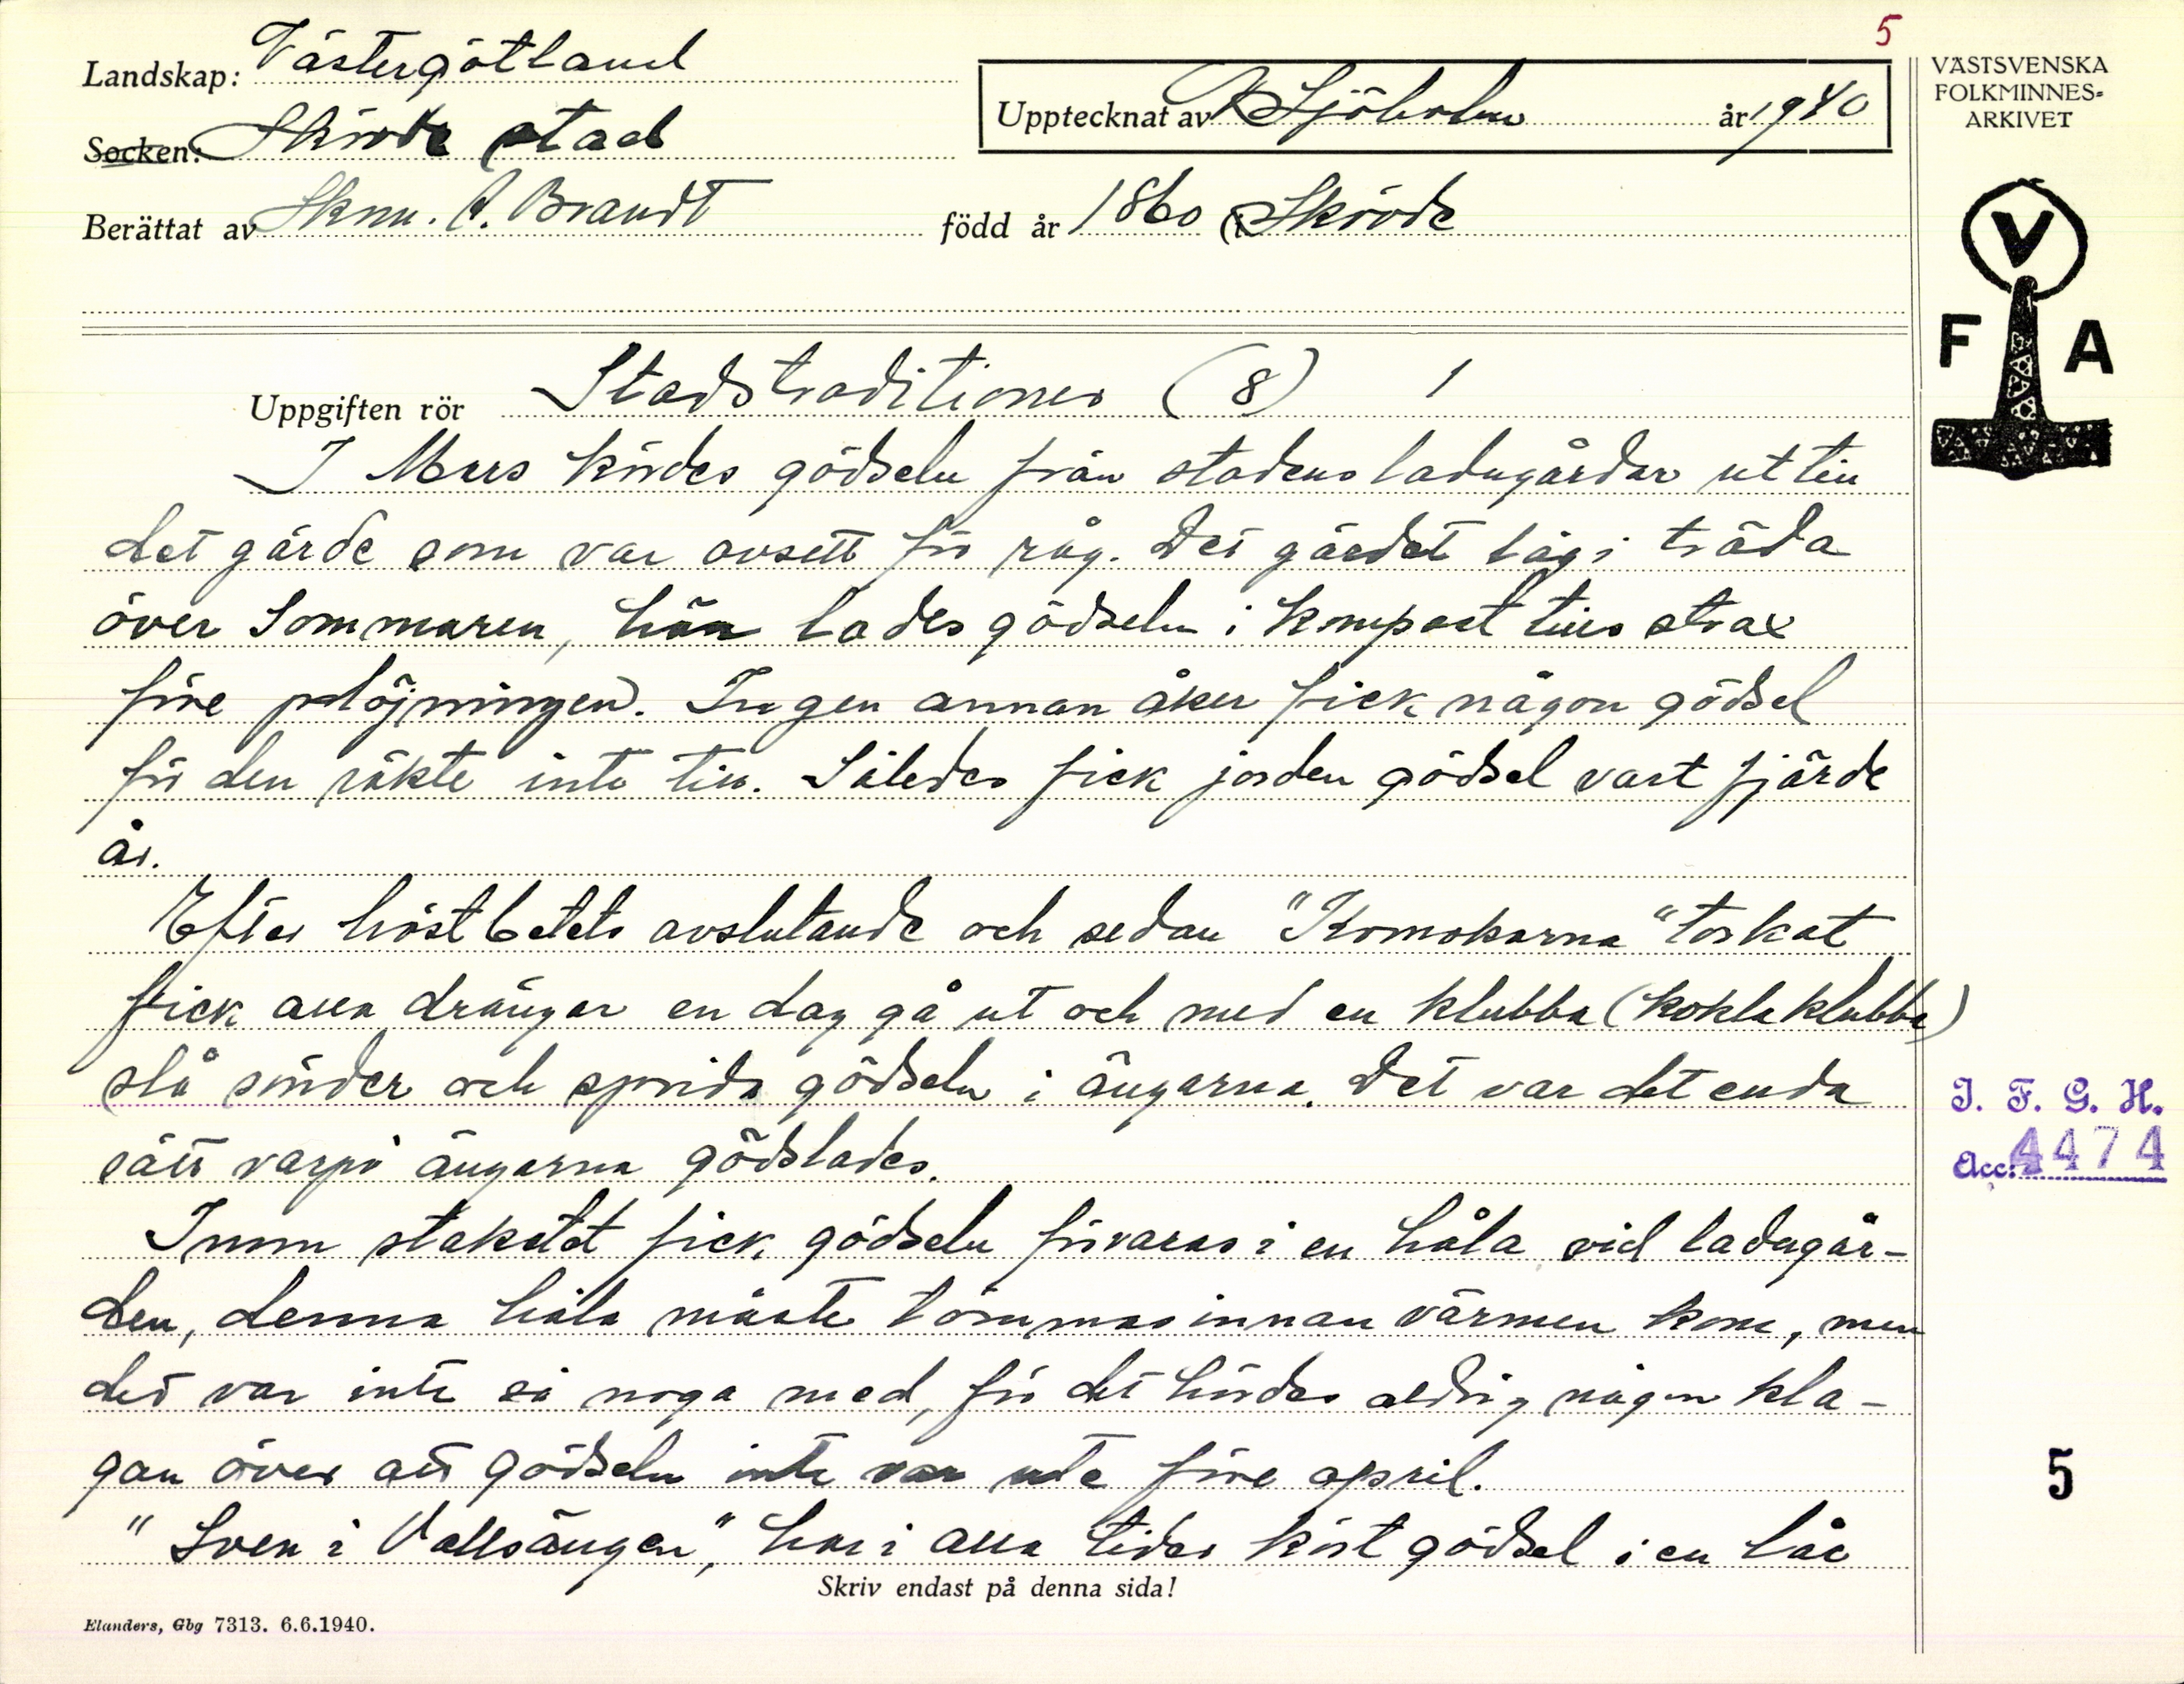 5
Landskap: Västergötland
Socken: Skövde stad
Upptecknat av Sjöholm år 1940
VÄSTSVENSKA
FOLKMINNES-
ARKIVET
Berättat av Skom. A. Brandt född år 1860 i Skövde
V
F A
Uppgiften rör Stadstraditioner (8) 1
I Mars kördes gödseln från stadens ladugårdar ut till
det gärde som var avsett för råg. Det gärdet låg i träda
över Sommaren, här lades gödseln i kompost tills strax
före plöjningen. Ingen annan åker fick någon gödsel
för den räkte inte till. Således fick jorden gödsel vart fjärde
år.
Efter höstbetets avslutande och sedan "Komokorna" torkat
fick alla drängar en dag gå ut och med en klubba (koklaklubba)
slå sönder och sprida gödseln i ängarna. Det var det enda
sätt varpå ängarna gödslades.
Inom staketet fick gödseln förvaras i en håla vid ladugår-
den, denna håla måste tömmas innan värmen kom, men
det var inte så noga med, för det hördes aldrig någon kla-
gan över att gödseln inte var ute före april.
"Sven i Vallsängen," har i alla tider kört gödsel i en låc
Skriv endast på denna sida!
Elanders, Gbg 7313. 6.6.1940.
I. F. G. H.
Acc: 4474
5